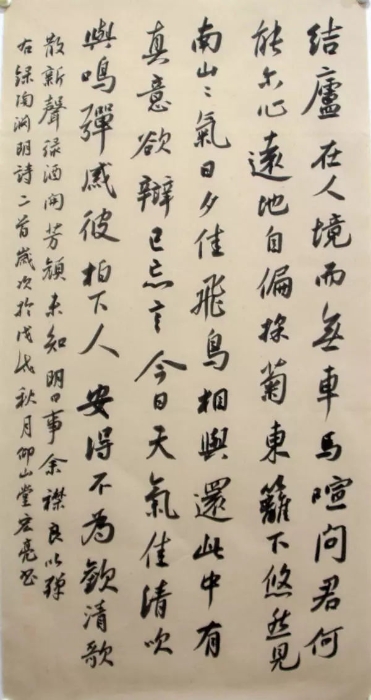 結廬在人境而無車馬喧問君何
能尔心遠地自偏採菊東籬下悠然見
南山〻氣日夕佳飛鳥相與還此中有
真意欲辯已忘言今日天氣佳清吹
與鳴彈感彼柏下人安得不為歡清歌
散新聲緑酒開芳顏未知明日事余襟良以殫
右録陶渊明詩二首歲次於戊戌秋月仰山堂宏亮书